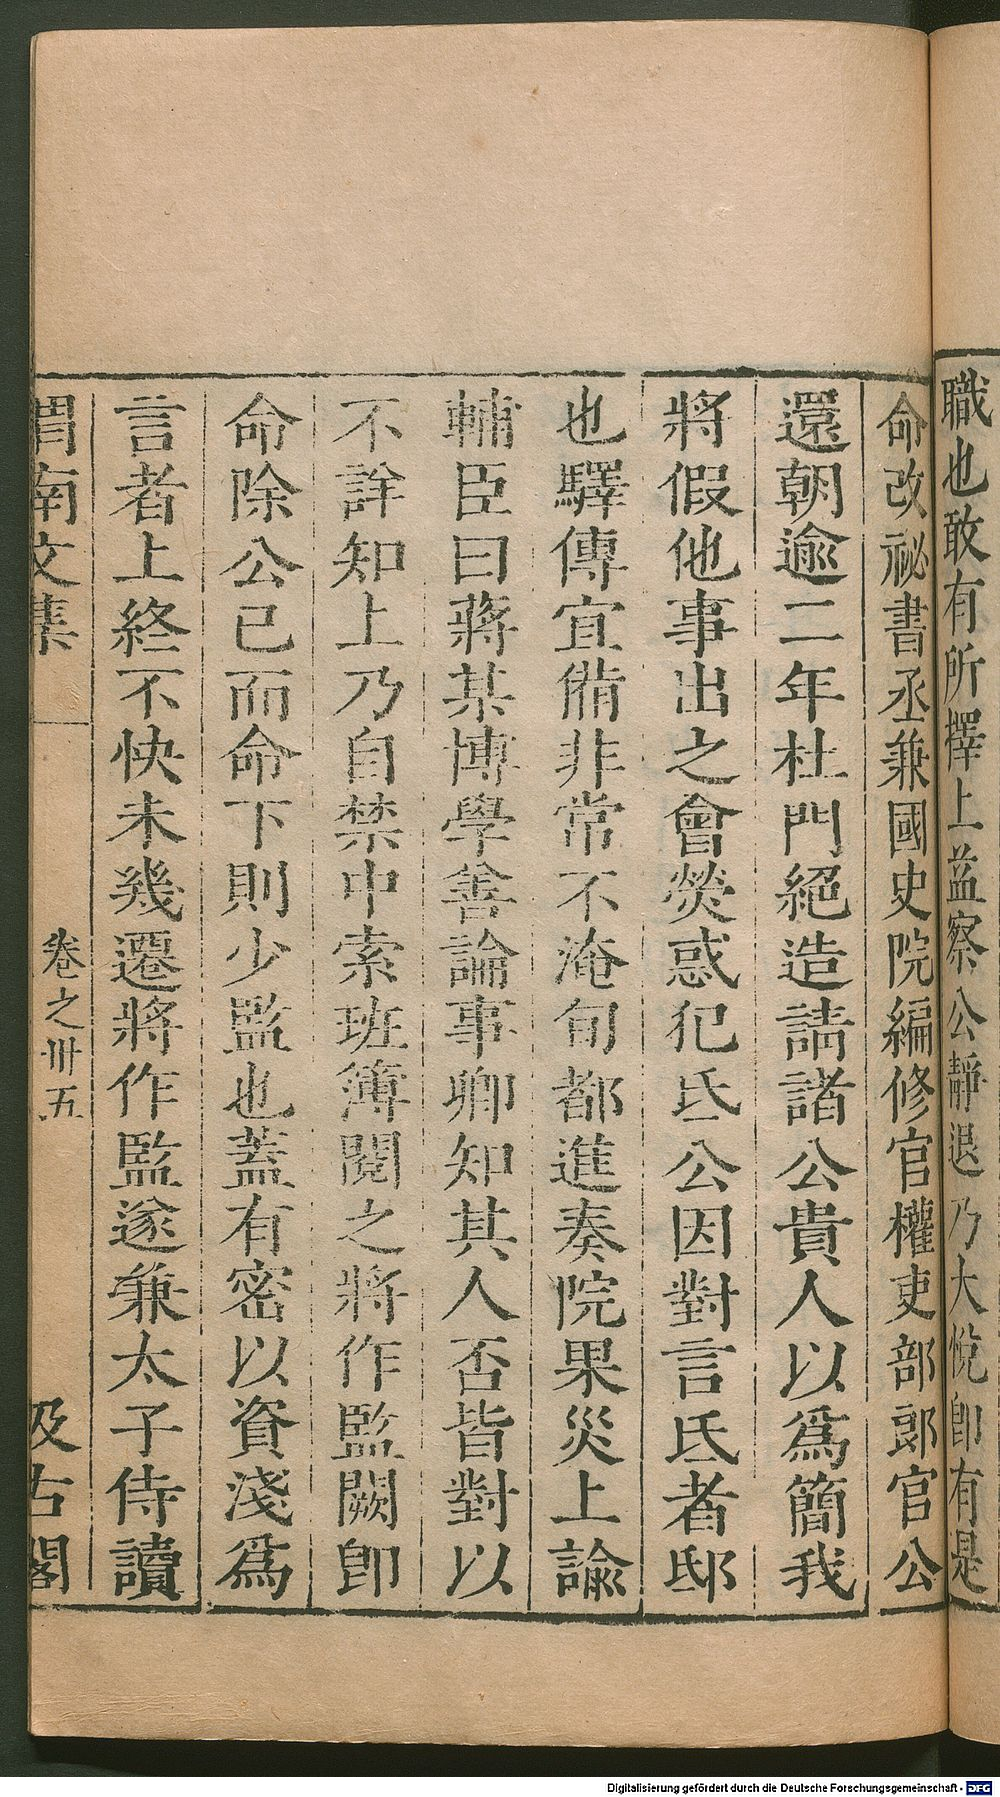 職也敢有所擇上益察公靜退乃大悅卽有是
命改祕書丞兼國史院編修官權吏部郞官公
還朝逾二年杜門絕造請諸公貴人以爲簡我
將假他事出之會熒惑犯氐公因對言氐者邸
也驛傳宜備非常不淹旬都進奏院果災上諭
輔臣曰蔣某博學善論事卿知其人否皆對以
不詳知上乃自禁中索班簿閱之將作監闕卽
命除公已而命下則少監也蓋有密以資淺爲
言者上終不快未幾遷將作監遂兼太子侍讀
渭南文集 卷之卅五 汲古閣
Digitalisierung gefördert durch die Deutsche Forschungsgemeinschaft - DFG